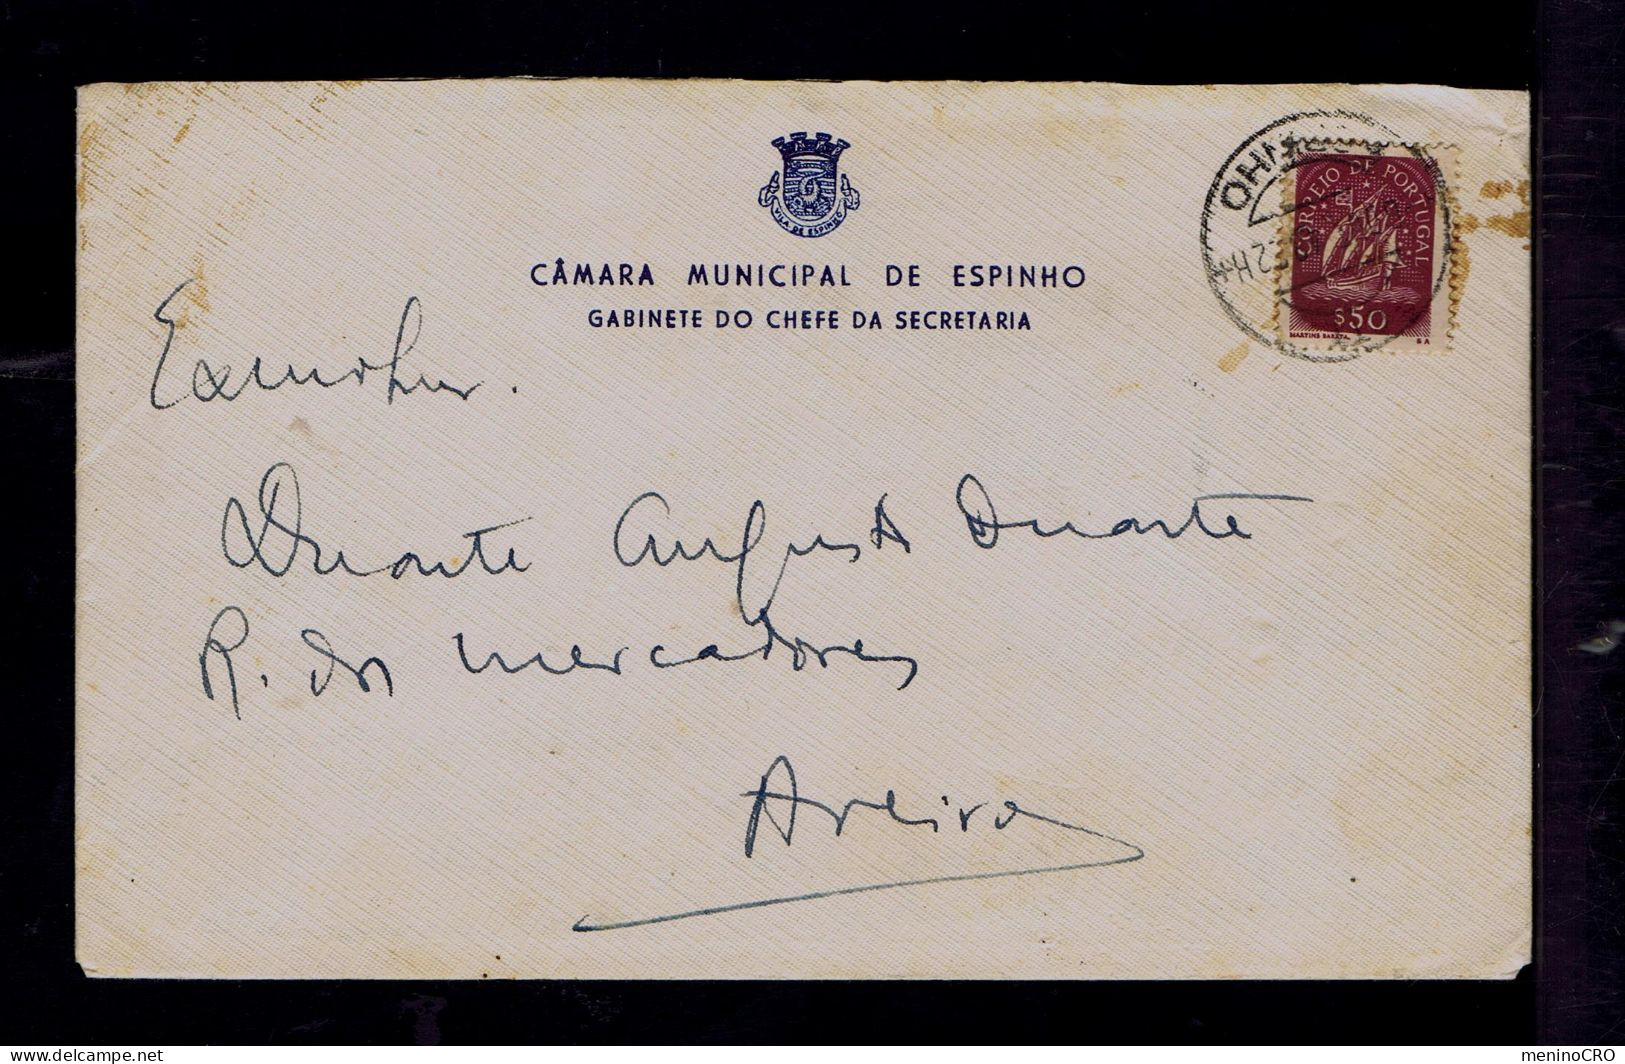 VILA DE ESPINHO
CÂMARA MUNICIPAL DE ESPINHO
GABINETE DO CHEFE DA SECRETARIA
ESPINHO
CORREIO DE PORTUGAL
$50
MARTINS BARATA
Duarte Augusto Duarte
R. dos Mercadores
Aveiro
meninoCRO